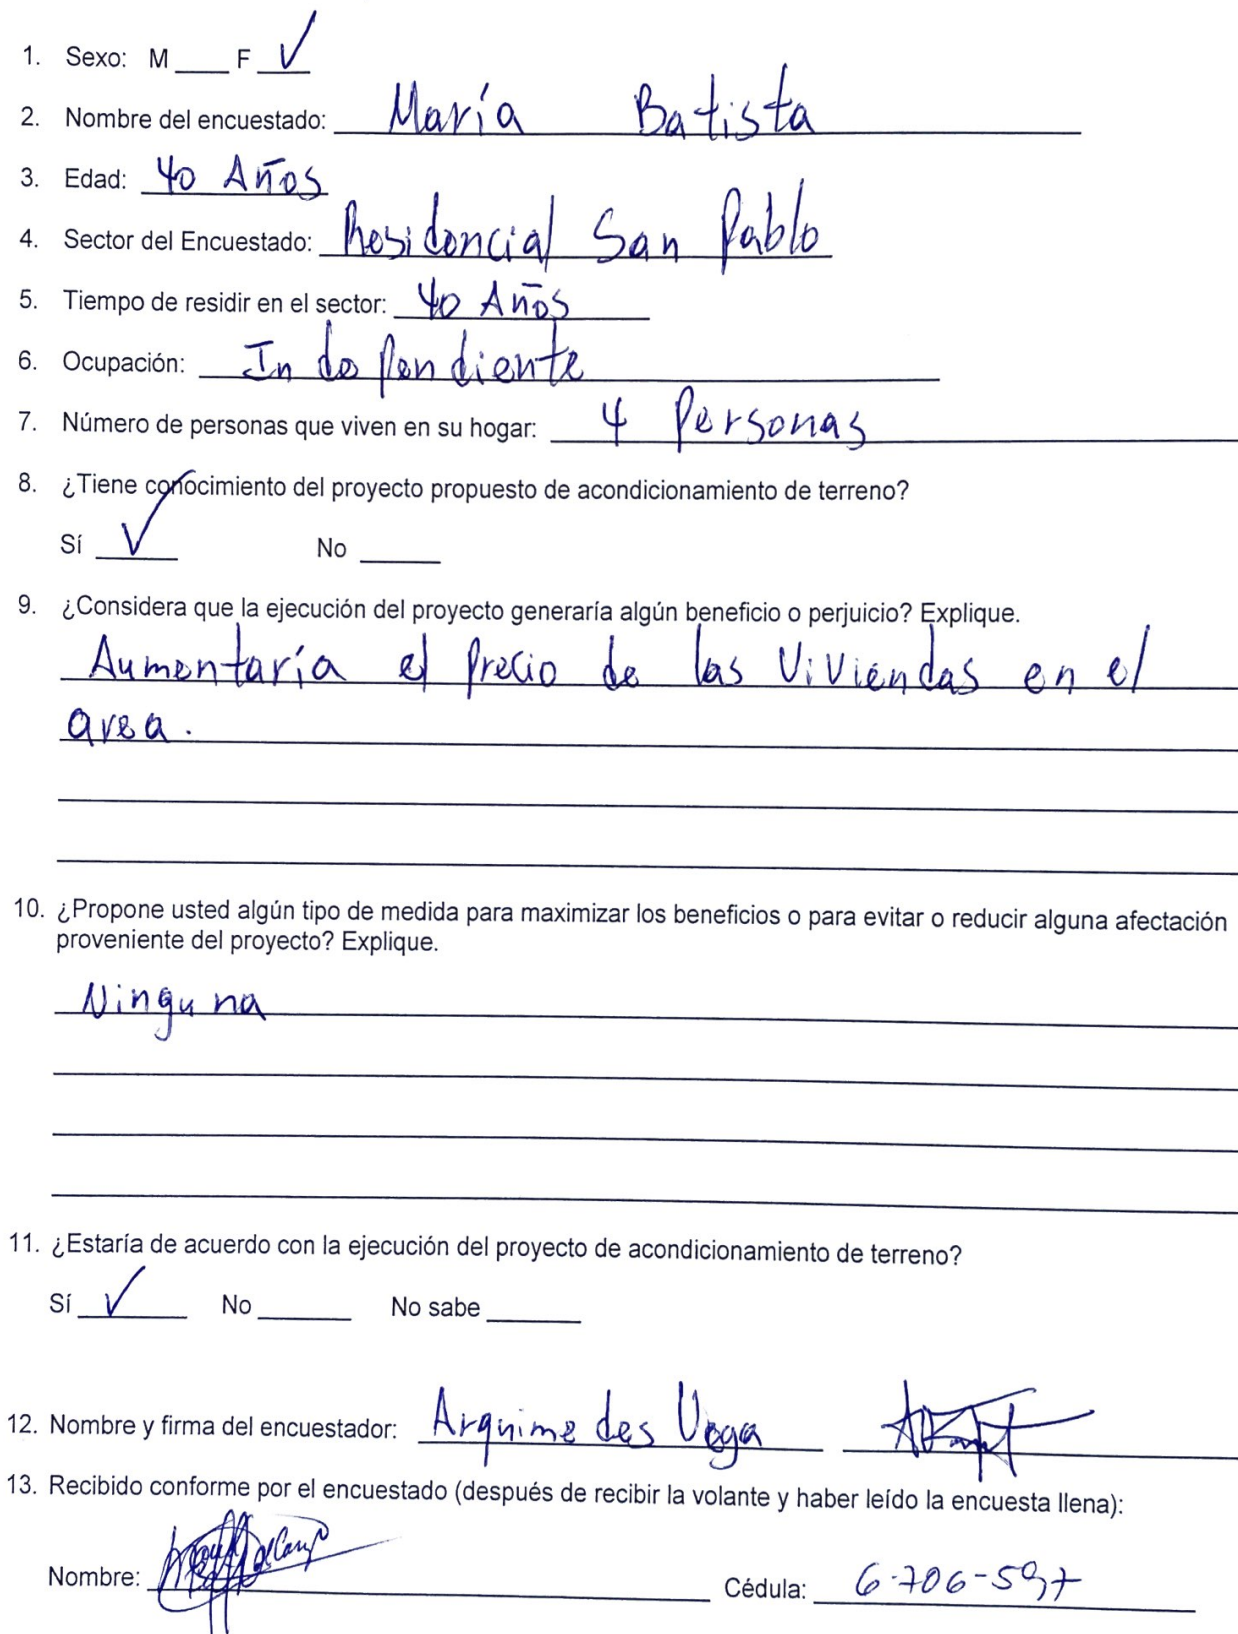 1. Sexo: M ____ F √
2. Nombre del encuestado: María Batista
3. Edad: 40 Años
4. Sector del Encuestado: Residencial San Pablo
5. Tiempo de residir en el sector: 40 Años
6. Ocupación: Independiente
7. Número de personas que viven en su hogar: 4 Personas
8. ¿Tiene conocimiento del proyecto propuesto de acondicionamiento de terreno?
Sí √ No ____
9. ¿Considera que la ejecución del proyecto generaría algún beneficio o perjuicio? Explique.
Aumentaría el precio de las Viviendas en el
area.
10. ¿Propone usted algún tipo de medida para maximizar los beneficios o para evitar o reducir alguna afectación
proveniente del proyecto? Explique.
Ninguna
11. ¿Estaría de acuerdo con la ejecución del proyecto de acondicionamiento de terreno?
Sí √ No ____ No sabe ____
12. Nombre y firma del encuestador: Arquimedes Vega
13. Recibido conforme por el encuestado (después de recibir la volante y haber leído la encuesta llena):
Nombre: Cédula: 6-706-597